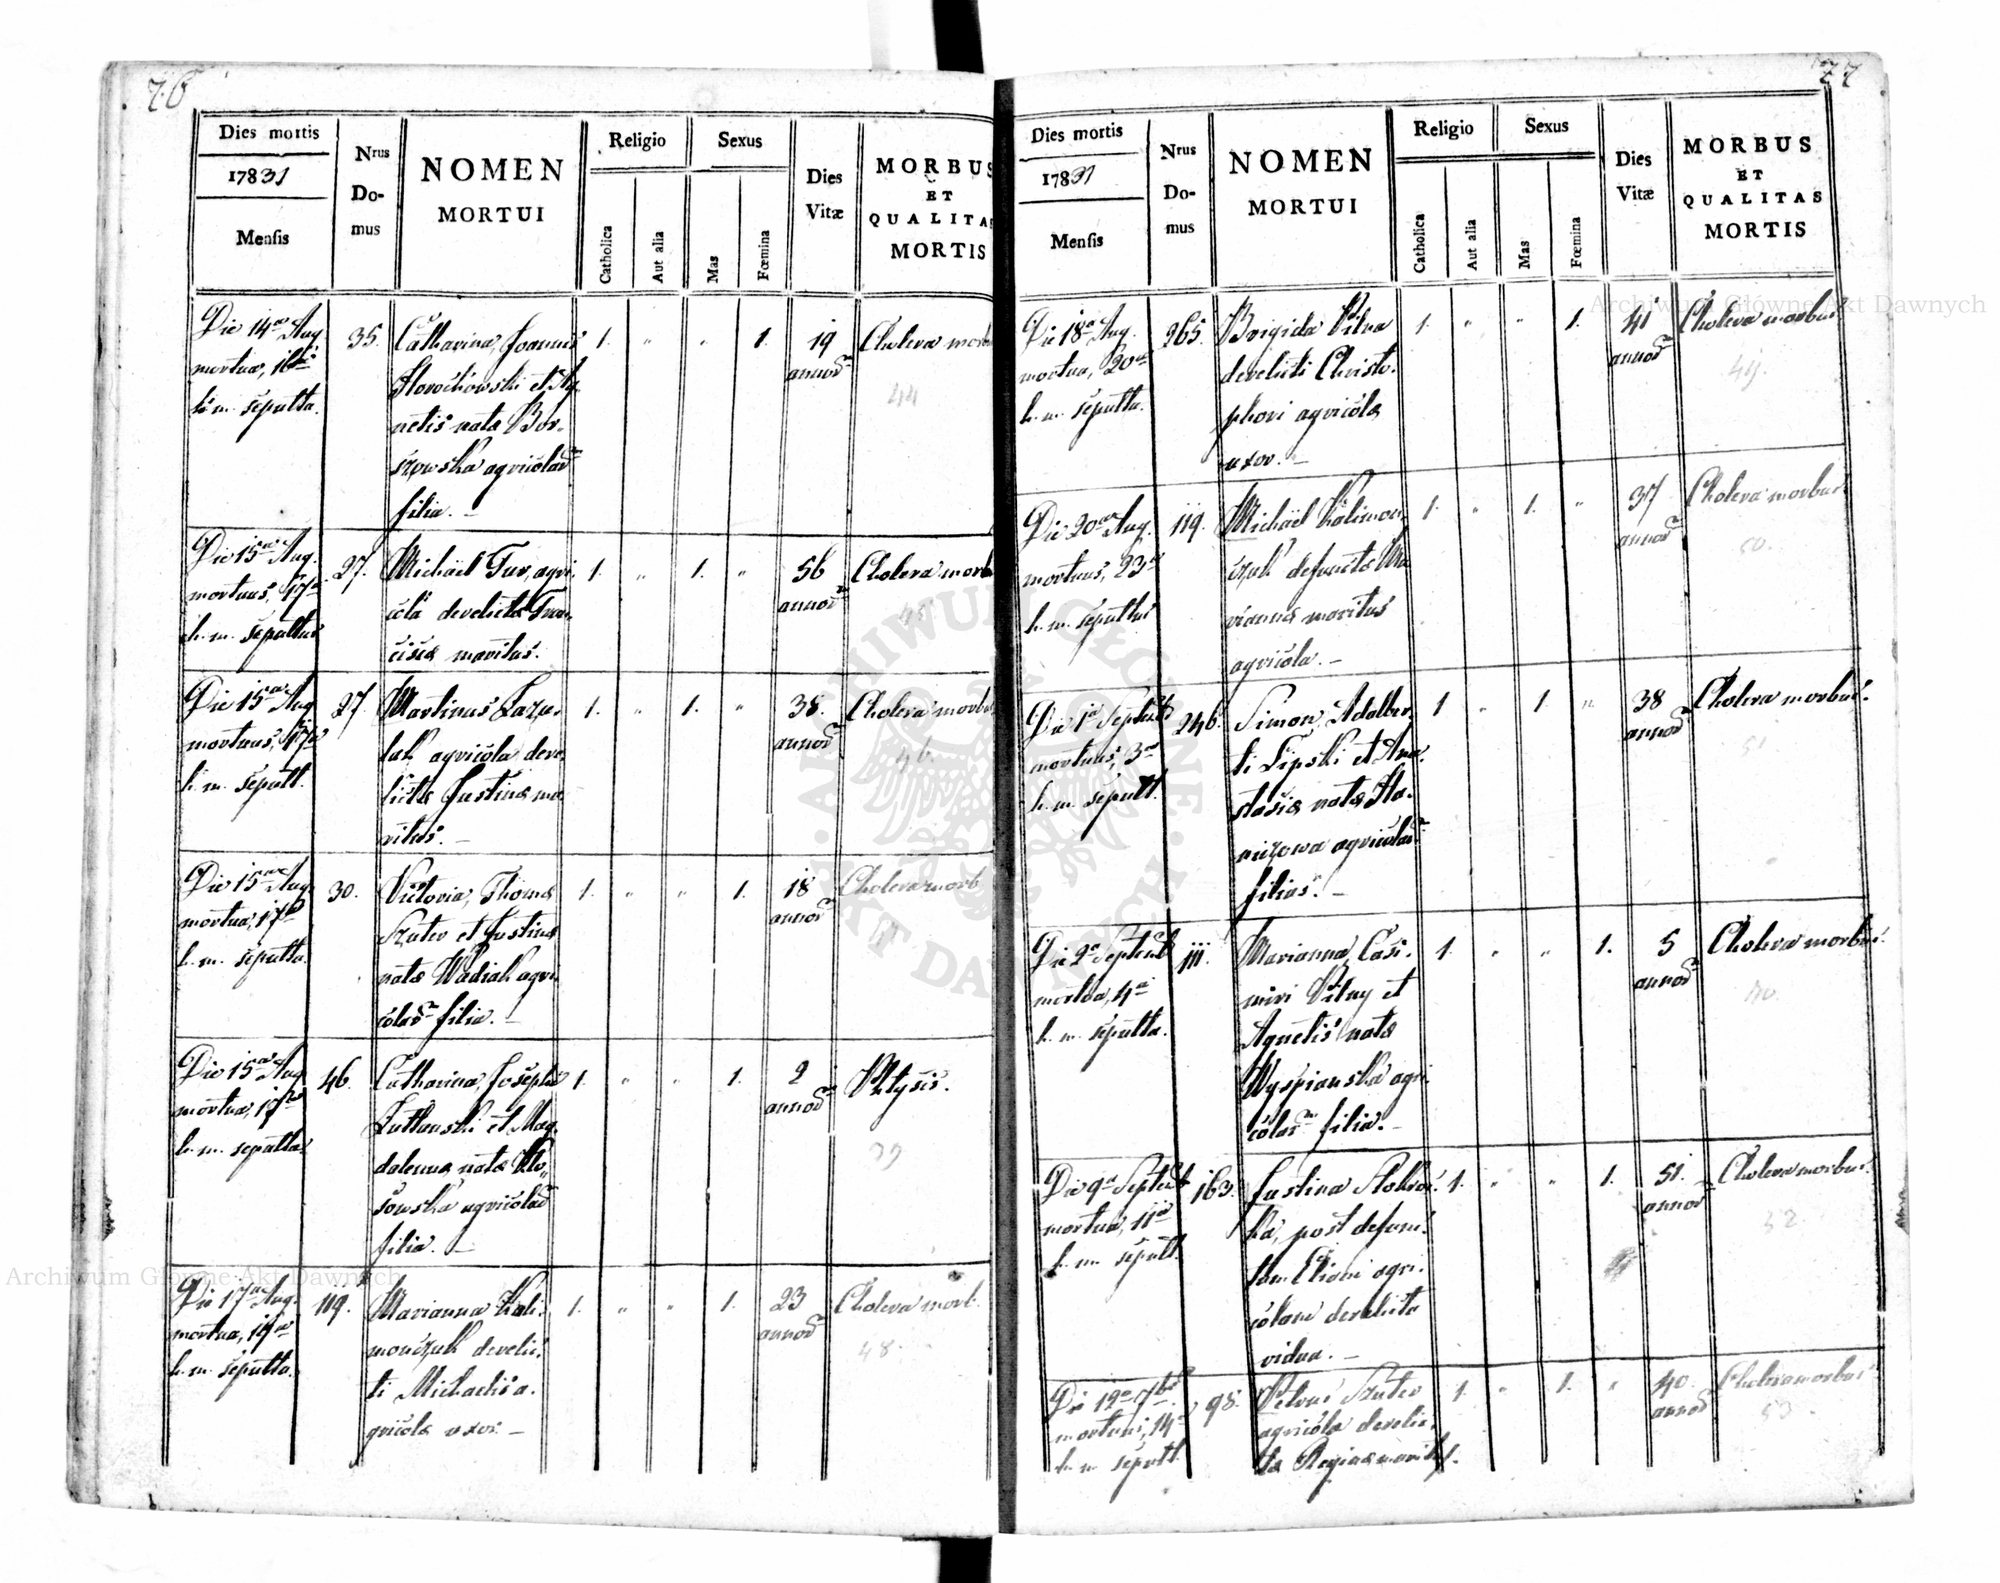 76
Dies mortis
1831
Mensis
Nrus
Do-
mus
NOMEN
MORTUI
Religio
Catholica
Aut alia
Sexus
Mas
Fœmina
Dies
Vitæ
MORBUS
ET
QUALITAS
MORTIS
Die 14a Aug.
mortua, 16ta
h. m. sepulta.
35.
Catharina, Joannis
et Ag-
netis nata Bor-
szowska agricolar
filia. –
1. „ „ 1.
19
annor
Cholera morb
44
Die 15a Aug.
mortuus, 17a
h. m. sepultus
27.
Michäel Tur, agri-
cola derelictæ Fran-
ciscæ maritus.
1. „ 1. „
56
annor
Cholera morb
45
Die 15a Aug
mortuus, 17a
h. m. sepult.
27.
Martinus Lazur-
tak agricola dere-
lictæ Justinæ ma-
ritus. –
1. „ 1. „
38.
annor
Cholera morbus
46.
Die 15a Aug
mortua, 17a
h. m. sepulta.
30.
Victoria, Thomæ
Szuter et Justinæ
natæ Wadiak agri-
colar filia. –
1. „ „ 1.
18
annor
Cholera morb
Die 15a Aug
mortua, 17a
h. m. sepulta
46.
Catharina, Josephi
Lutkowski et Mag-
dalenæ natæ
agricolar
filia. –
1. „ „ 1.
2
annor
Phtysis.
39
Die 17a Aug.
mortua, 19a
h. m. sepulta.
119.
Marianna Kali-
monczuk derelic-
ti Michaelis a-
gricolæ uxor. –
1. „ „ 1.
23
annor
Cholera morb.
48.
77
Dies mortis
1831
Mensis
Nrus
Do-
mus
NOMEN
MORTUI
Religio
Catholica
Aut alia
Sexus
Mas
Fœmina
Dies
Vitæ
MORBUS
ET
QUALITAS
MORTIS
Die 18a Aug.
mortua, 20a
h. m. sepulta.
265.
Brigida Pilna
derelicti Christo-
phori agricolæ
uxor. –
1. „ „ 1.
41
annor
Cholera morbus
49.
Die 20a Aug.
mortuus, 23a
h. m. sepultus
119.
Michäel Kalimon-
czuk defunctæ Ma-
riannæ maritus
agricola. –
1. „ 1. „
37
annor
Cholera morbus
50.
Die 1a Septemb
mortuus, 3a
h. m. sepult.
246.
Simon, Adalber-
ti Lipski et Ana-
stasiæ natæ
agricolar
filius. –
1 „ 1. „
38
annor
Cholera morbus.
51
Die 2a Septemb
mortua, 4a
h. m. sepulta.
111.
Marianna, Casi-
miri Pilny et
Agnetis nata
Wyspianska agri-
colar filia. –
1. „ „ 1.
5
annor
Cholera morbus.
Die 9a Septemb
mortua, 11a
h. m. sepult.
163.
Justina
post defunc-
tum agri-
colam derelicta
vidua. –
1. „ „ 1.
51.
annor
Cholera morbus.
52
Die 12a 7bris
mortuus, 14a
h. m. sepult.
98.
Petrus Szuter
agricola derelic-
tæ Reginæ maritus.
1. „ 1. „
40.
annor
Cholera morbus
53
Archiwum Główne Akt Dawnych
Archiwum Główne Akt Dawnych
ARCHIWUM GŁÓWNE AKT DAWNYCH